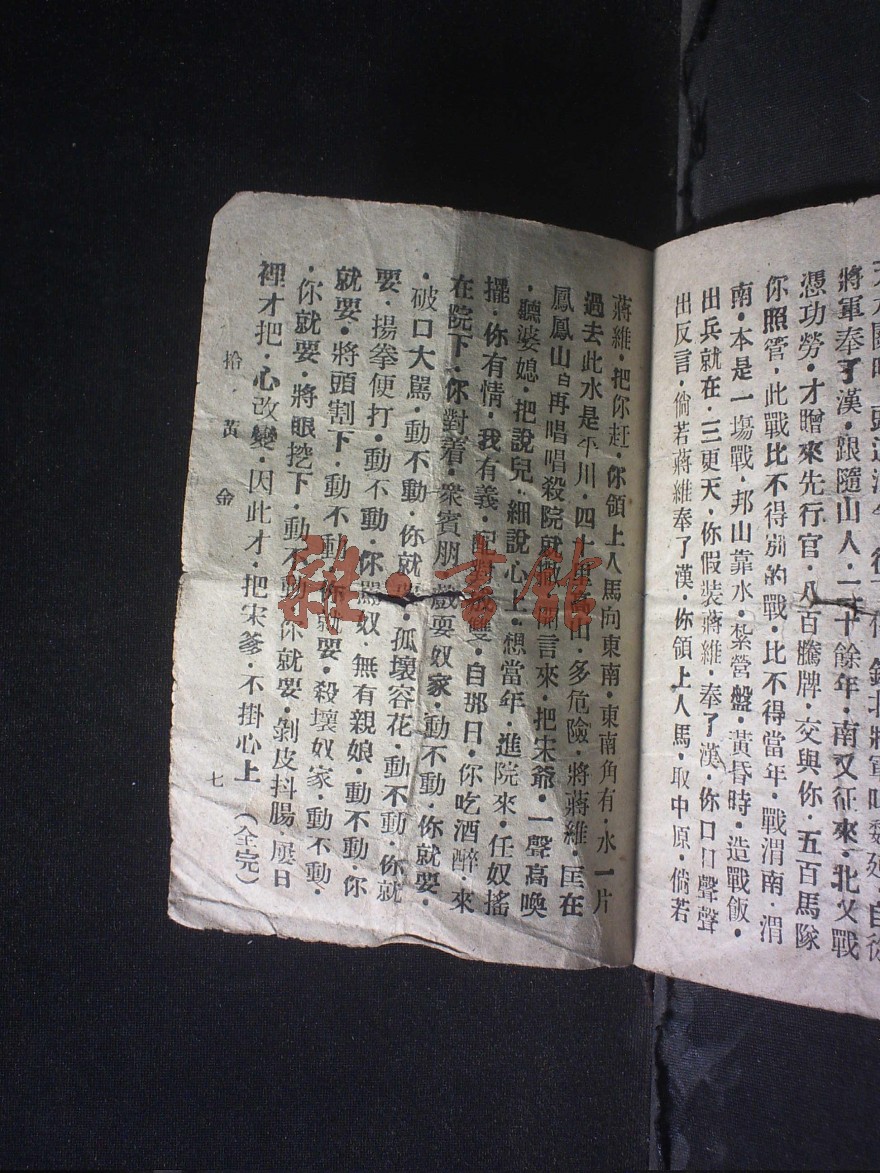 將軍奉了漢·跟隨山人·一十餘年·南又征來·北又戰
憑功勞·才贈來先行官·八百騰牌·交與你·五百馬隊
你照管·此戰比不得別的戰·比不得當年·戰渭南·渭
南·本是一塲戰·邦山靠水·紮營盤·黃昏時·造戰飯·
出兵就在·三更天·你假裝蔣維·奉了漢·你口口聲聲
出反言·倘若蔣維奉了漢·你領上人馬·取中原·倘若
蔣維·把你赶·你領上人馬向東南·東南角有·水一片
過去此水是平川·四十里高山·多危險·將蔣維·匡在
鳳鳳山白再唱唱殺院就撒·開言來·把宋爺·一聲高喚
·聽婆媳·把說兒·細說心上·想當年·進院來·任奴搖
擺·你有情·我有義·配對成雙·自那日·你吃酒醉·來
在院下·你對着·衆賓朋·戲耍奴家·動不動·你就要·
·破口大駡·動不動·你就要·孤壞容花·動不動·你就
要·揚拳便打·動不動·你駡奴·無有親娘·動不動·你
就要·將頭割下·動不動·你就要·殺壞奴家·動不動·
·你就要·將眼挖下·動不動·你就要·剝皮抖腸·屢日
裡才把·心改變·因此才·把宋爹·不掛心上 (全完)
拾·黃 金 七
雜·書館